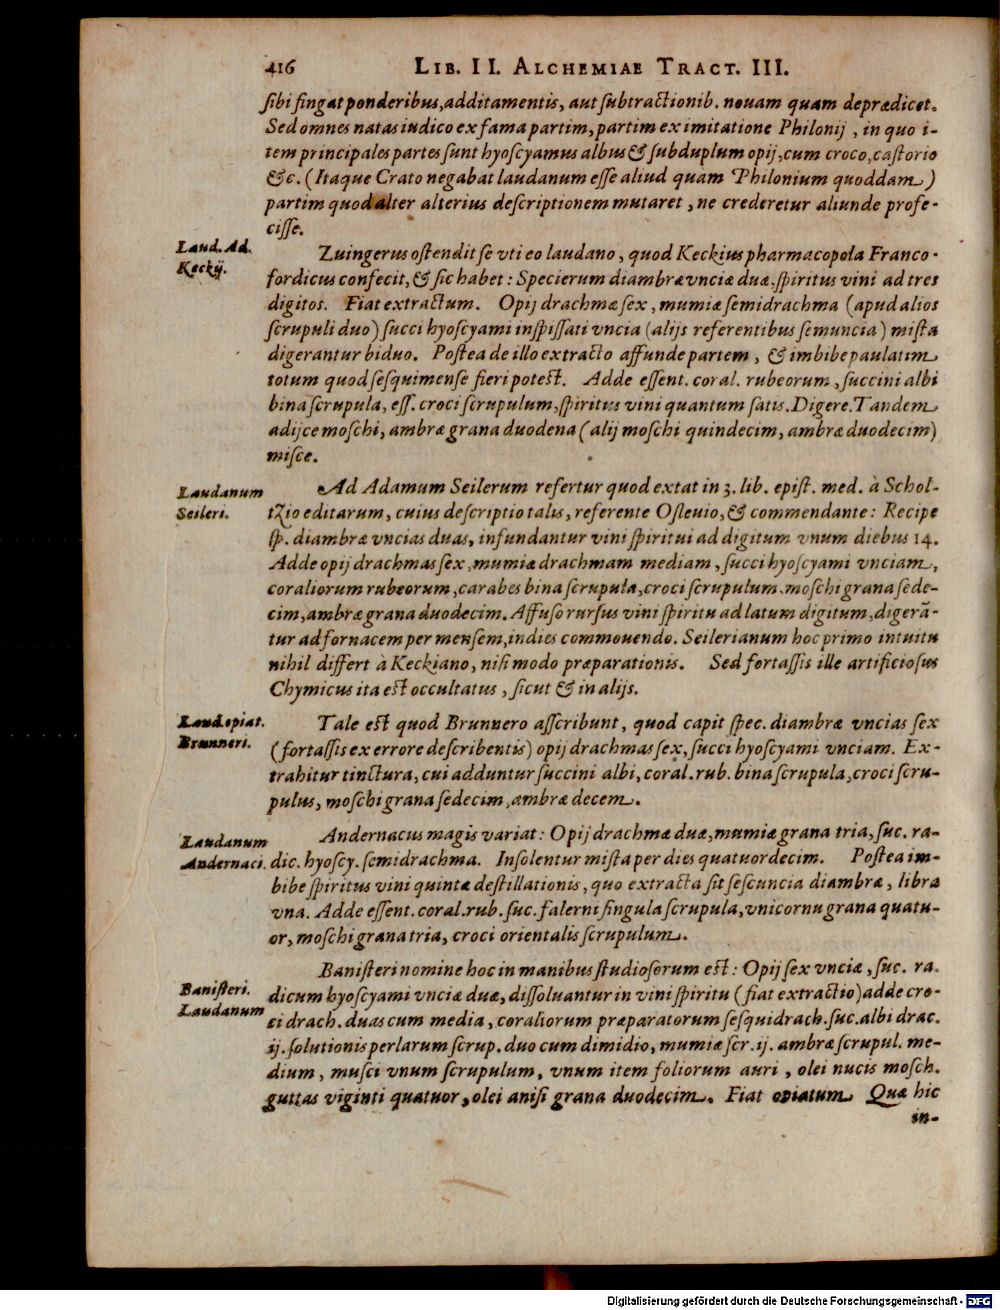 416 LIB. II. ALCHEMIAE TRACT. III.
sibi fingat ponderibus, additamentis, aut subtractionib. nouam quam deprædicet.
Sed omnes natas iudico ex fama partim, partim ex imitatione Philonij, in quo i-
tem principales partes sunt hyoscyamus albus & subduplum opij, cum croco, castorio
&c. (Itaque Crato negabat laudanum esse aliud quam Philonium quoddam)
partim quod alter alterius descriptionem mutaret, ne crederetur aliunde profe-
cisse.
Laud. Ad.
Keckij.
Zuingerus ostendit se vti eo laudano, quod Keckius pharmacopola Franco-
fordicus confecit, & sic habet: Specierum diambræ vnciæ duæ, spiritus vini ad tres
digitos. Fiat extractum. Opij drachmæ sex, mumiæ semidrachma (apud alios
scrupuli duo) succi hyoscyami inspissati vncia (alijs referentibus semuncia) mista
digerantur biduo. Postea de illo extracto affunde partem, & imbibe paulatim
totum quod sesquimense fieri potest. Adde essent. coral. rubeorum, succini albi
bina scrupula, ess. croci scrupulum, spiritus vini quantum satis. Digere. Tandem
adijce moschi, ambræ grana duodena (alij moschi quindecim, ambræ duodecim)
misce.
Laudanum
Seileri.
Ad Adamum Seilerum refertur quod extat in 3. lib. epist. med. à Schol-
tzio editarum, cuius descriptio talis, referente Osleuio, & commendante: Recipe
sp. diambræ vncias duas, infundantur vini spiritui ad digitum vnum diebus 14.
Adde opij drachmas sex, mumiæ drachmam mediam, succi hyoscyami vnciam,
coraliorum rubeorum, carabes bina scrupula, croci scrupulum, moschi grana sede-
cim, ambræ grana duodecim. Affuso rursus vini spiritu ad latum digitum, digerã-
tur ad fornacem per mensem, indies commouendo. Seilerianum hoc primo intuitu
nihil differt à Keckiano, nisi modo præparationis. Sed fortassis ille artificiosus
Chymicus ita est occultatus, sicut & in alijs.
Laud. opiat.
Brunneri.
Tale est quod Brunnero asscribunt, quod capit spec. diambræ vncias sex
(fortassis ex errore describentis) opij drachmas sex, succi hyoscyami vnciam. Ex-
trahitur tinctura, cui adduntur succini albi, coral. rub. bina scrupula, croci scru-
pulus, moschi grana sedecim, ambræ decem.
Laudanum
Andernaci.
Andernacus magis variat: Opij drachmæ duæ, mumiæ grana tria, suc. ra-
dic. hyoscy. semidrachma. Insolentur mista per dies quatuordecim. Postea im-
bibe spiritus vini quintæ destillationis, quo extracta sit sescuncia diambræ, libra
vna. Adde essent. coral. rub. suc. falerni singula scrupula, vnicornu grana quatu-
or, moschi grana tria, croci orientalis scrupulum.
Banisteri.
Laudanum
Banisteri nomine hoc in manibus studiosorum est: Opij sex vnciæ, suc. ra.
dicum hyoscyami vnciæ duæ, dissoluantur in vini spiritu (fiat extractio) adde cro-
ci drach. duas cum media, coraliorum præparatorum sesquidrach. suc. albi drac.
ij. solutionis perlarum scrup. duo cum dimidio, mumiæ scr. ij. ambræ scrupul. me-
dium, musci vnum scrupulum, vnum item foliorum auri, olei nucis mosch.
guttas viginti quatuor, olei anisi grana duodecim. Fiat opiatum Quæ hic
in-
Digitalisierung gefördert durch die Deutsche Forschungsgemeinschaft - DFG